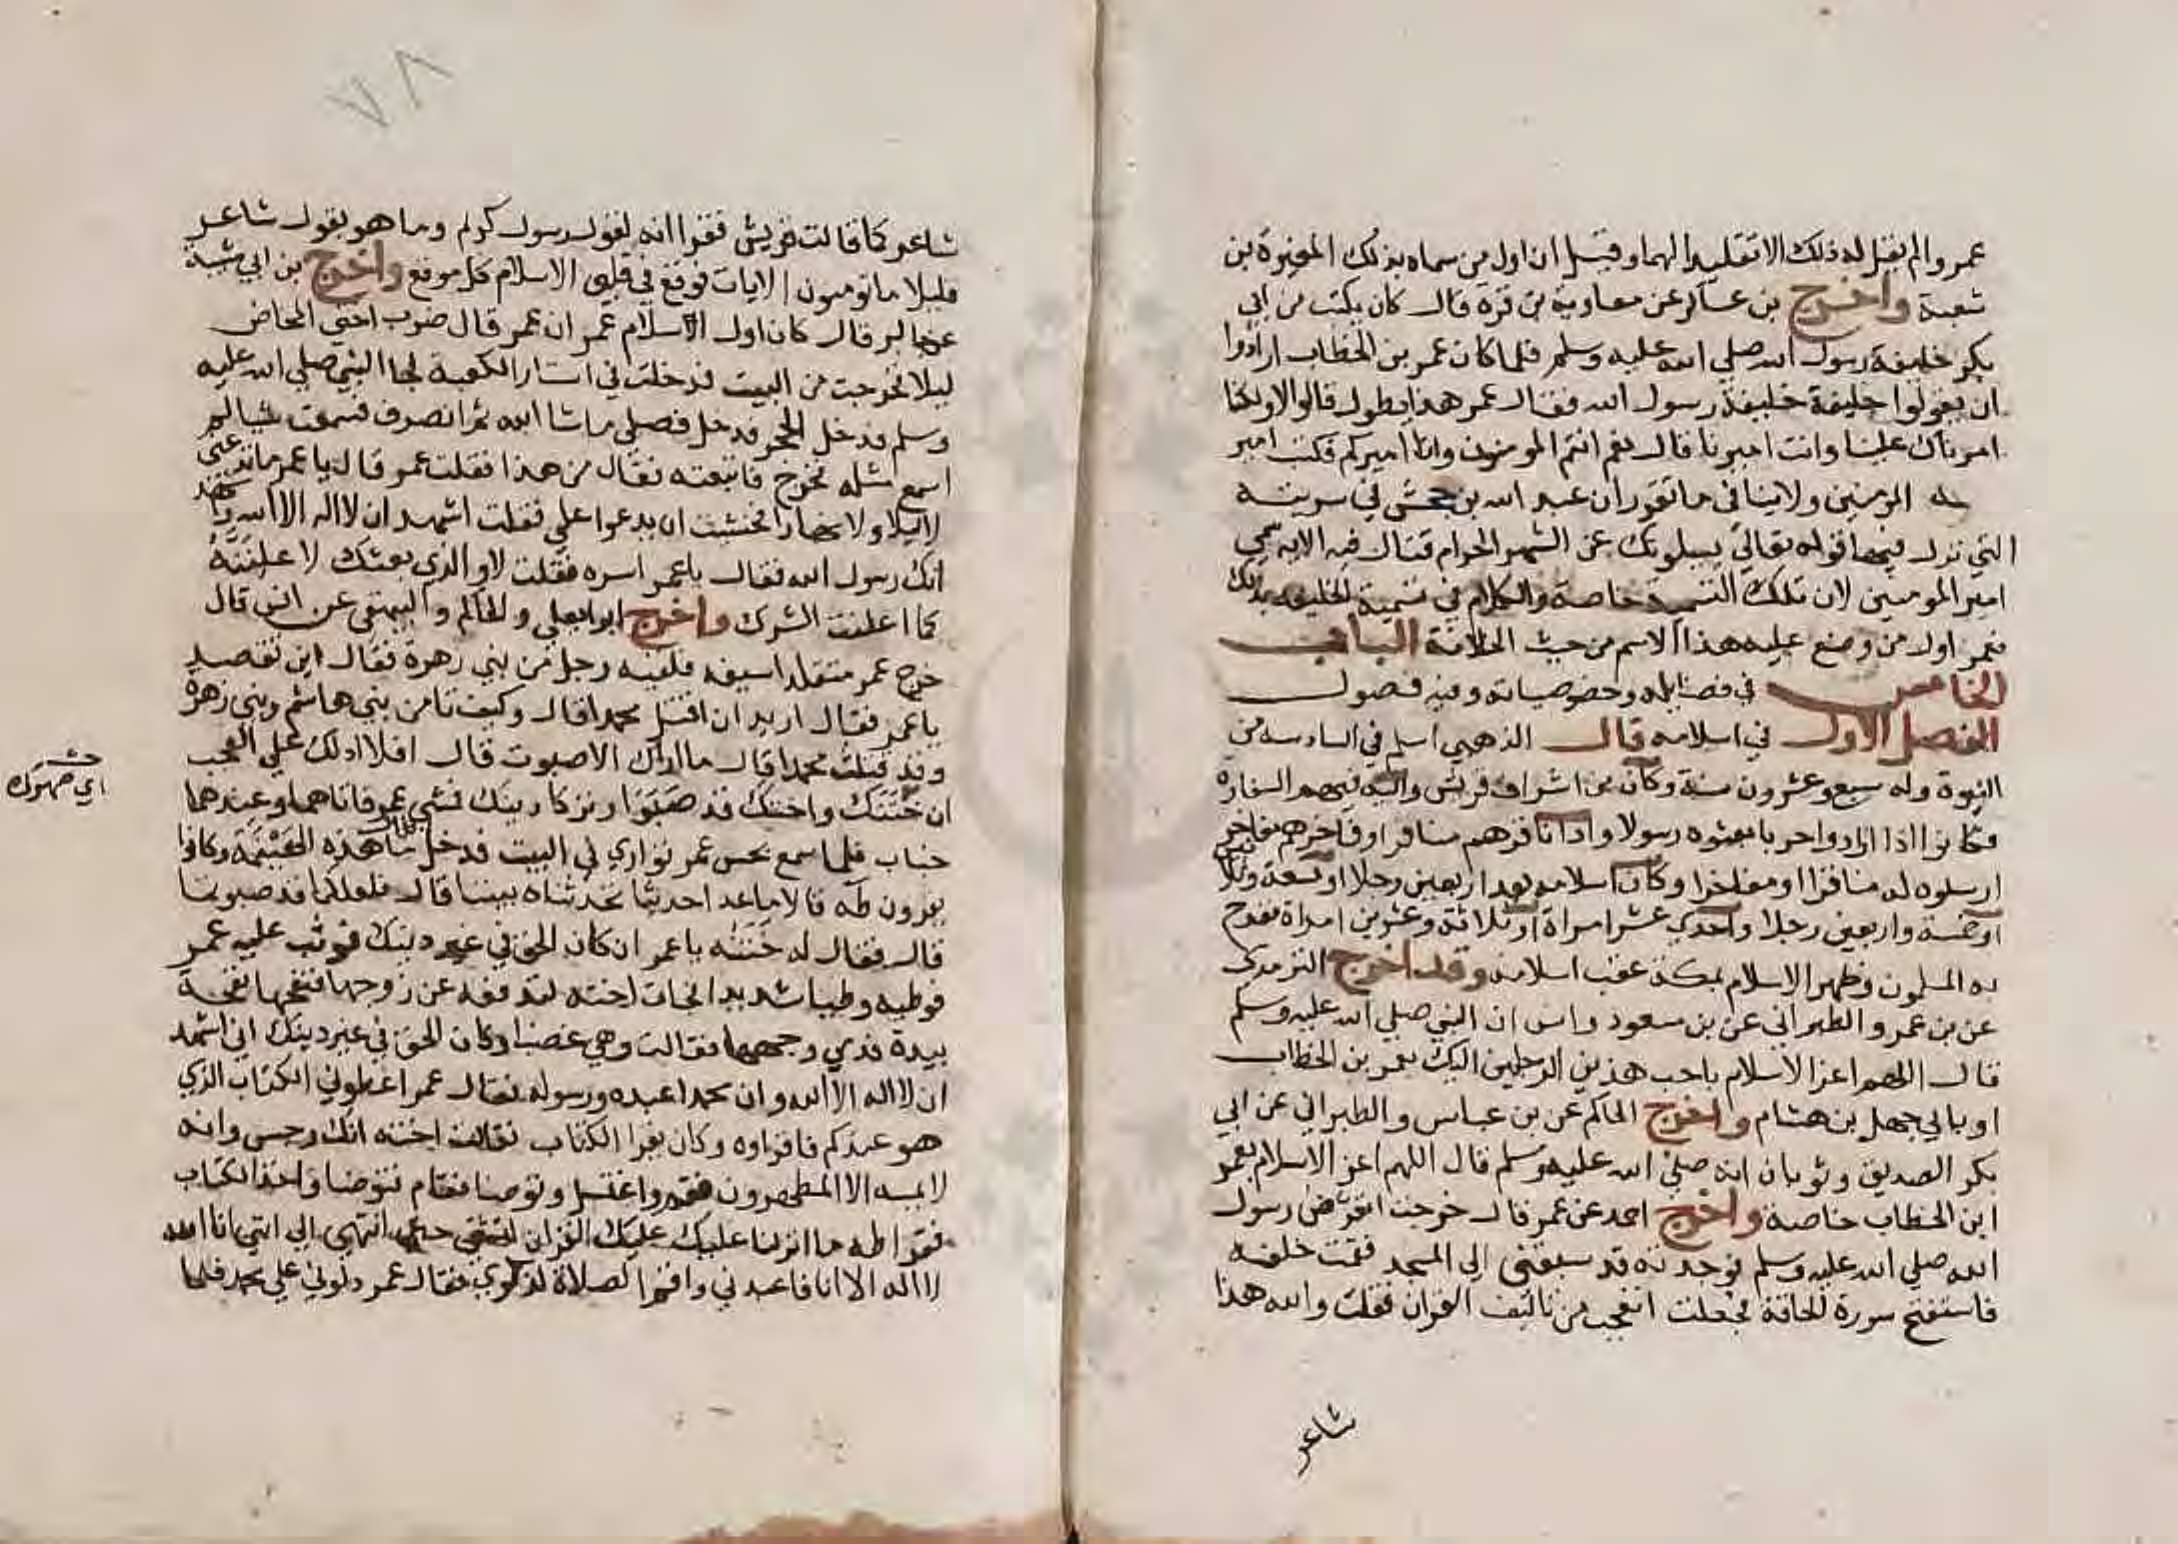 عمرو الم يقل له ذلك الا تقليد الهما وقيل ان اول من سماه بذلك المغيرة بن
شعبة واخرج بن عساكر عن معاوية بن قرة قال كان يكتب من ابي
بكر خليفة رسول الله صلي الله عليه وسلم فلما كان عمر بن الخطاب ارادوا
ان يقولوا خليفة خليفة رسول الله فقال عمر هذا يطول قالوا لا ولكنا
امرناك علينا وانت اميرنا قال نعم انتم المومنون وانا اميركم فكتب امير
المومنين ولا ينافي ما تقرر ان عبد الله بن جحش في سريته
التي نزل فيها قوله تعالي يسيلونك عن الشهر الحرام قتال فيه الايه سمي
امير المومنين لان تلك التسمية خاصة والكلام في تسمية الخليفه بذلك
فعمر اول من وضع عليه هذا الاسم من حيث الخلافة الباب
الخامس في فضايله وخصوصياته وفيه فصول
الفصل الاول في اسلامه قال الذهبي اسلم في السادسه من
النبوة وله سبع وعشرون سنة وكان من اشراف قريش واليه فيهم السفاره
فكانوا اذا ارادوا حربا بعثوه رسولا واذا نافرهم منافر او فاخرهم مفاخر
ارسلوه له منافرا او مفاخرا وكان اسلامه بعد اربعين رجلا او تسعة وثلاثين
او خمسة واربعين رجلا واحدي عشر امراة او ثلاثة وعشرين امراة ففرح
به المسلمون وظهر الاسلام بمكة عقب اسلامه وقد اخرج الترمذي
عن بن عمر والطبراني عن بن مسعود وانس ان النبي صلي الله عليه وسلم
قال اللهم اعز الاسلام باحب هذين الرجلين اليك بعمر بن الخطاب
او بابي جهل بن هشام واخرج الحاكم عن بن عباس والطبراني عن ابي
بكر الصديق وثوبان انه صلي الله عليه وسلم قال اللهم اعز الاسلام بعمر
ابن الخطاب خاصة واخرج احمد عن عمر قال خرجت اتعرض رسول
الله صلي الله عليه وسلم فوجدته قد سبقني الي المسجد فقمت خلفه
فاستفتح سورة الحاقة فجعلت اتعجب من تاليف القران فقلت والله هذا
شاعر
٧٨
شاعر كما قالت قريش فقرا انه لقول رسول كريم وما هو بقول شاعر
قليلا ما تومنون الايات فوقع في قلبي الاسلام كل موقع واخرج بن ابي شيبة
عن جابر قال كان اول الاسلام عمر ان عمر قال ضرب اختي المخاض
ليلا فخرجت من البيت فدخلت في استار الكعبة فجا النبي صلي الله عليه
وسلم فدخل الحجر فدخل فصلي ما شا الله ثم انصرف فسمعت شيا لم
اسمع مثله فخرج فاتبعته فقال من هذا فقلت عمر قال يا عمر ما تدعني
لا ليلا ولا نهارا فخشيت ان يدعوا علي فقلت اشهد ان لا اله الا الله واشهد
انك رسول الله فقال يا عمر اسره فقلت لا والذي بعثك لاعلننه
كما اعلنت الشرك واخرج ابو ايعلي والحاكم والبيهقي عن انس قال
خرج عمر متقلد اسيفه فلقيه رجل من بني زهرة فقال اين تقصد
يا عمر فقال اريد ان اقتل محمدا قال وكيف تامن بني هاشم وبني زهرة
وقد قتلت محمدا قال ما اراك الا صبوت قال افلا ادلك علي العجب
ان ختنك واختك قد صبوا وتركا دينك فمشي عمر فاتاهما وعندهما
خباب فلما سمع بحس عمر تواري في البيت فدخل فقال ما هذه الهينمة وكانوا
يقرون طه قالا ما عدا حديثا تحدثناه بيننا قال فلعلكما قد صبوتما
قال فقال له ختنه يا عمر ان كان الحق في غير دينك فوثب عليه عمر
فوطيه وطيا شديدا فجات اخته لتدفعه عن زوجها فنفحها نفحة
بيده فدمي وجهها فقالت وهي غضبا وكان الحق في غير دينك اني اشهد
ان لا اله الا الله وان محمدا عبده ورسوله فقال عمر اعطوني الكتاب الذي
هو عندكم فاقراوه وكان يقرا الكتاب فقالت اخته انك رجس وانه
لا يمسه الا المطهرون فقم واغتسل او توضا فقام فتوضا واخذ الكتاب
فقرا طه ما انزلنا عليك عليك القران لتشقي حتي انتهي الي انني انا الله
لا اله الا انا فاعبدني واقم الصلاة لذكري فقال عمر دلوني علي محمد فلما
اي صهرك